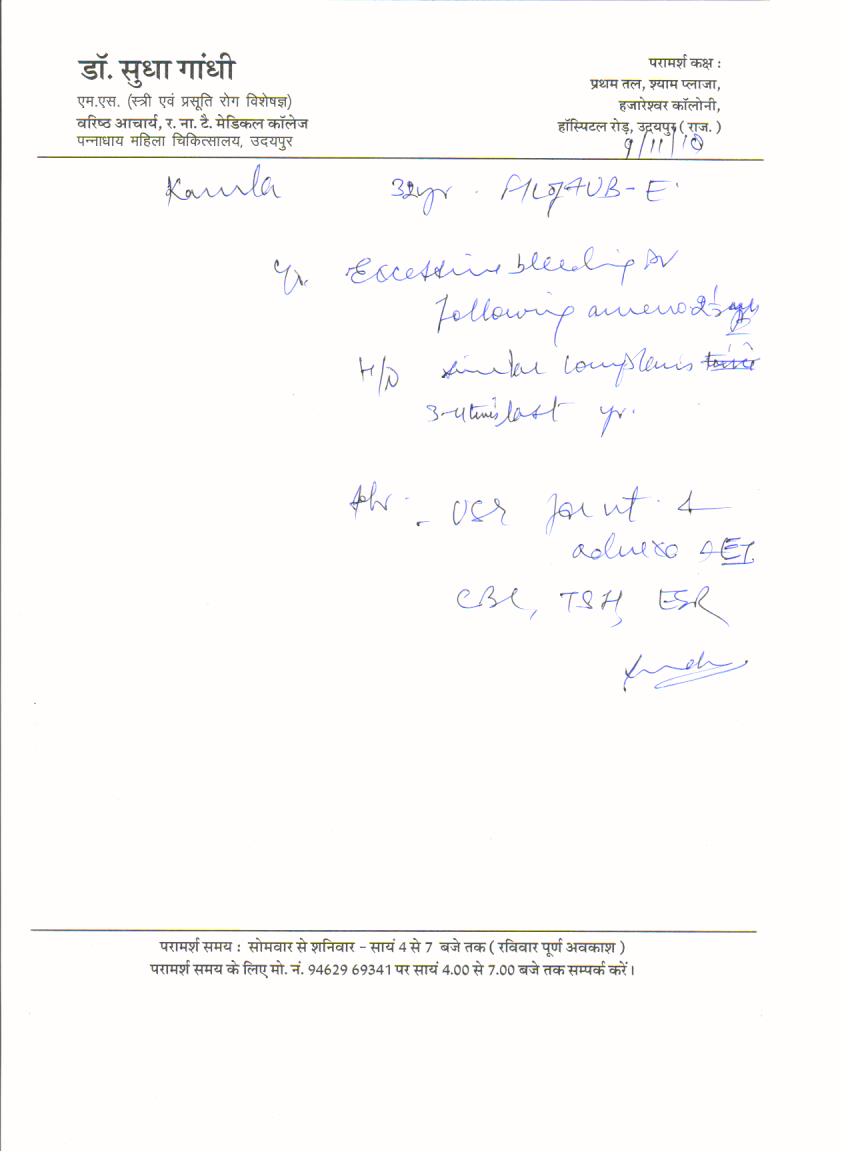 डॉ. सुधा गांधी
एम.एस. (स्त्री एवं प्रसूति रोग विशेषज्ञ)
वरिष्ठ आचार्य, र. ना. टै. मेडिकल कॉलेज
पन्नाधाय महिला चिकित्सालय, उदयपुर
परामर्श कक्ष :
प्रथम तल, श्याम प्लाजा,
हजारेश्वर कॉलोनी,
हॉस्पिटल रोड़, उदयपुर ( राज. )
9/11/10
Kamla 32yr
Excessive bleeding PV
following
H/O similar
3-4 times last yr.
USG for ut. &
adnexa & ET
CBC, TSH, ESR
परामर्श समय : सोमवार से शनिवार - सायं 4 से 7 बजे तक ( रविवार पूर्ण अवकाश )
परामर्श समय के लिए मो. नं. 94629 69341 पर सायं 4.00 से 7.00 बजे तक सम्पर्क करें।